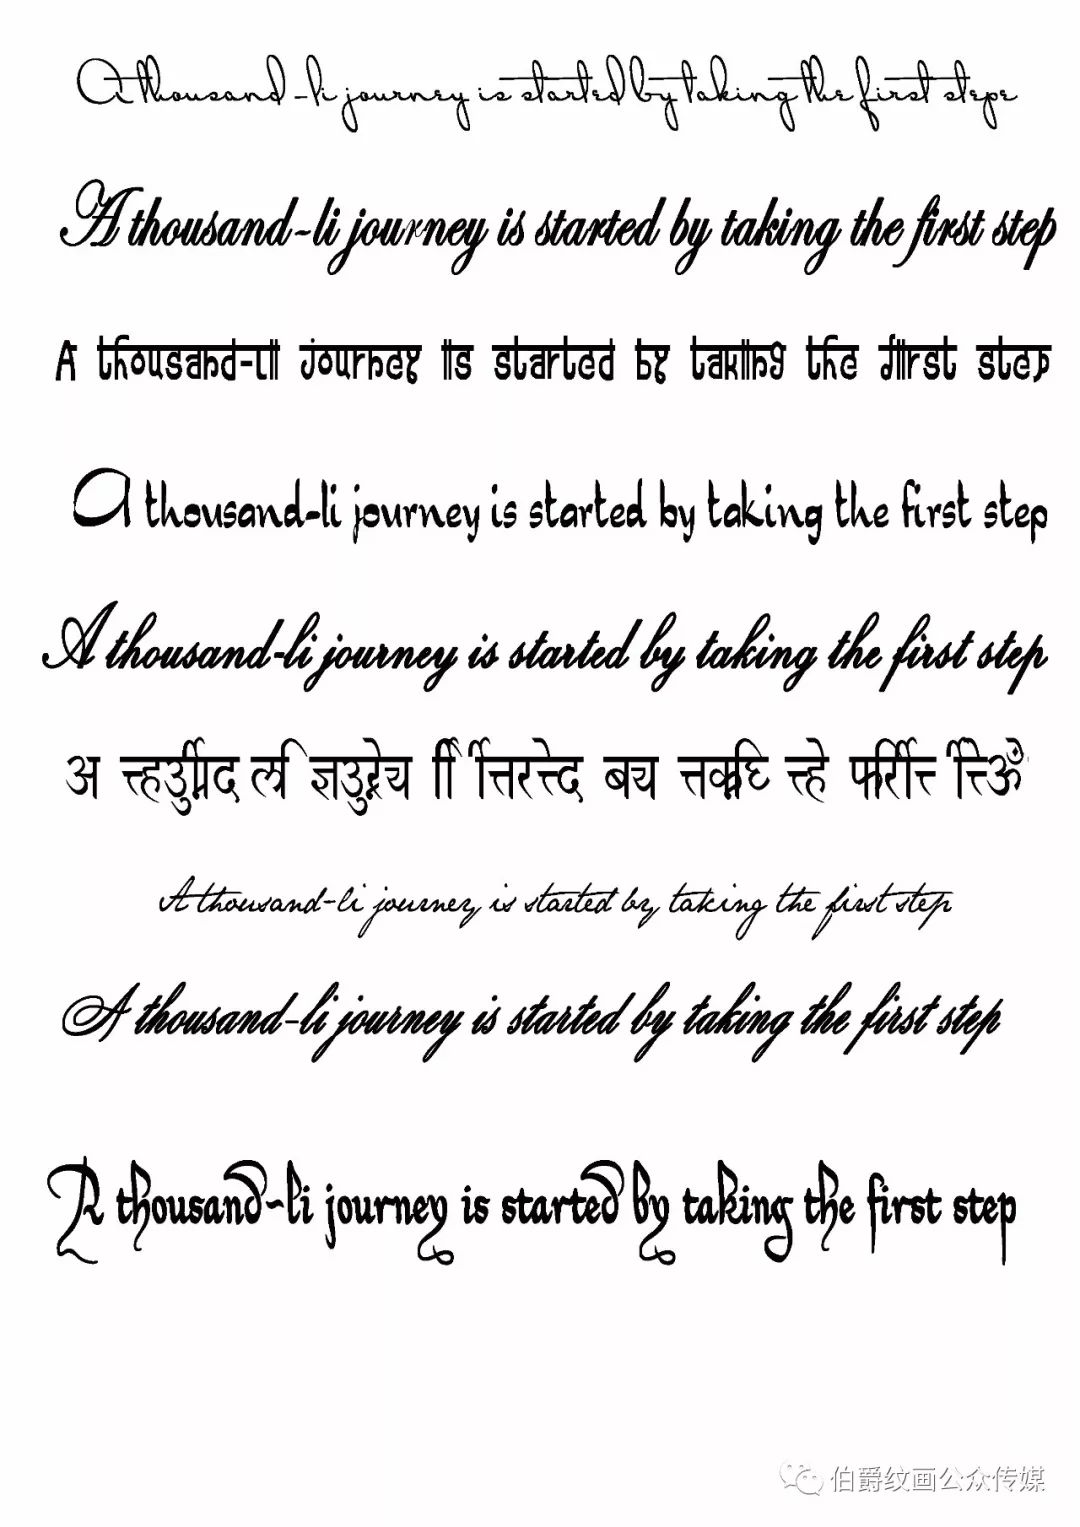 A thousand-li journey is started by taking the first stepe
A thousand-li journey is started by taking the first step
A thousand-li journey is started by taking the first step
A thousand-li journey is started by taking the first step
A thousand-li journey is started by taking the first step
अ बच्य
A thousand-li journey is started by taking the first step
A thousand-li journey is started by taking the first step
A thousand-li journey is started by taking the first step
伯爵纹画公众传媒